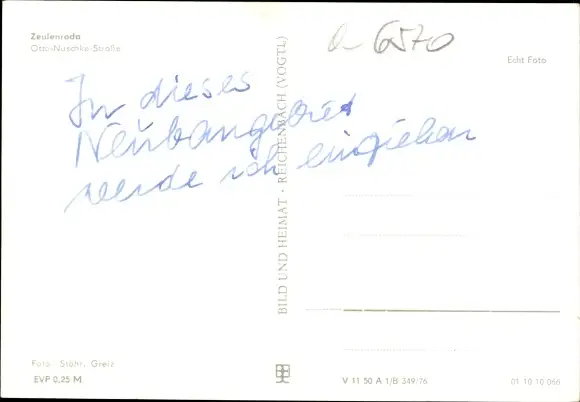 Zeulenroda
Otto-Nuschke-Straße
a 6570
Echt Foto
In dieses
Neubangebiet
werde ich einziehen
BILD UND HEIMAT · REICHENBACH (VOGTL)
Foto: Stöhr, Greiz
EVP 0,25 M
V 11 50 A 1/B 349/76
01 10 10 066